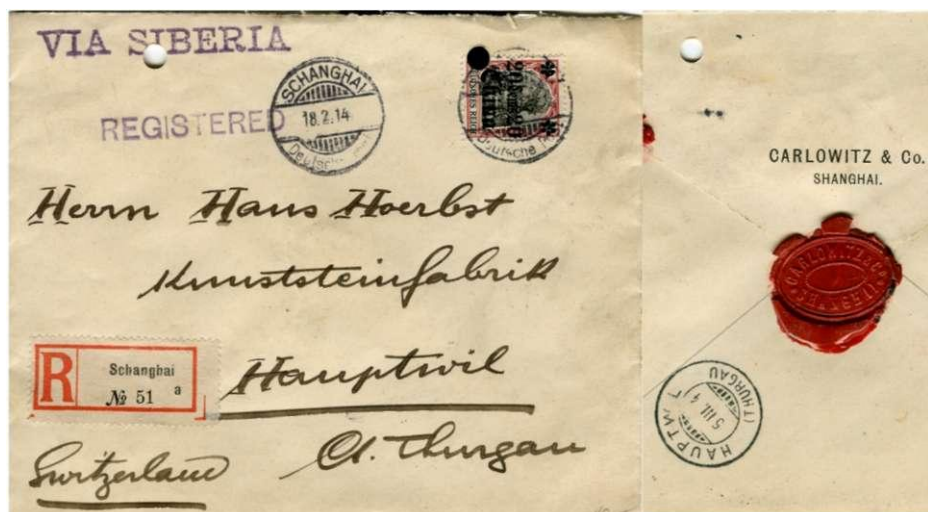 VIA SIBERIA
REGISTERED
SCHANGHAI
18.2.14
Deutsche
20 20
China
Deutsche
Herrn Hans Hoerbst
Kunststeinfabrik
Hauptwil
Ct. Thurgau
Switzerland
R
Schanghai
№ 51 a
CARLOWITZ & Co.
SHANGHAI.
CARLOWITZ & Co
HAUPTW L
5 III. 
(THURGAU)